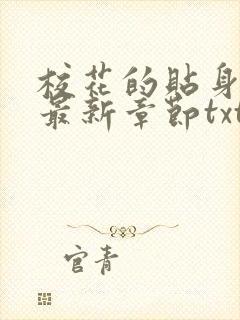 校花的貼身
最新章節txt
官青